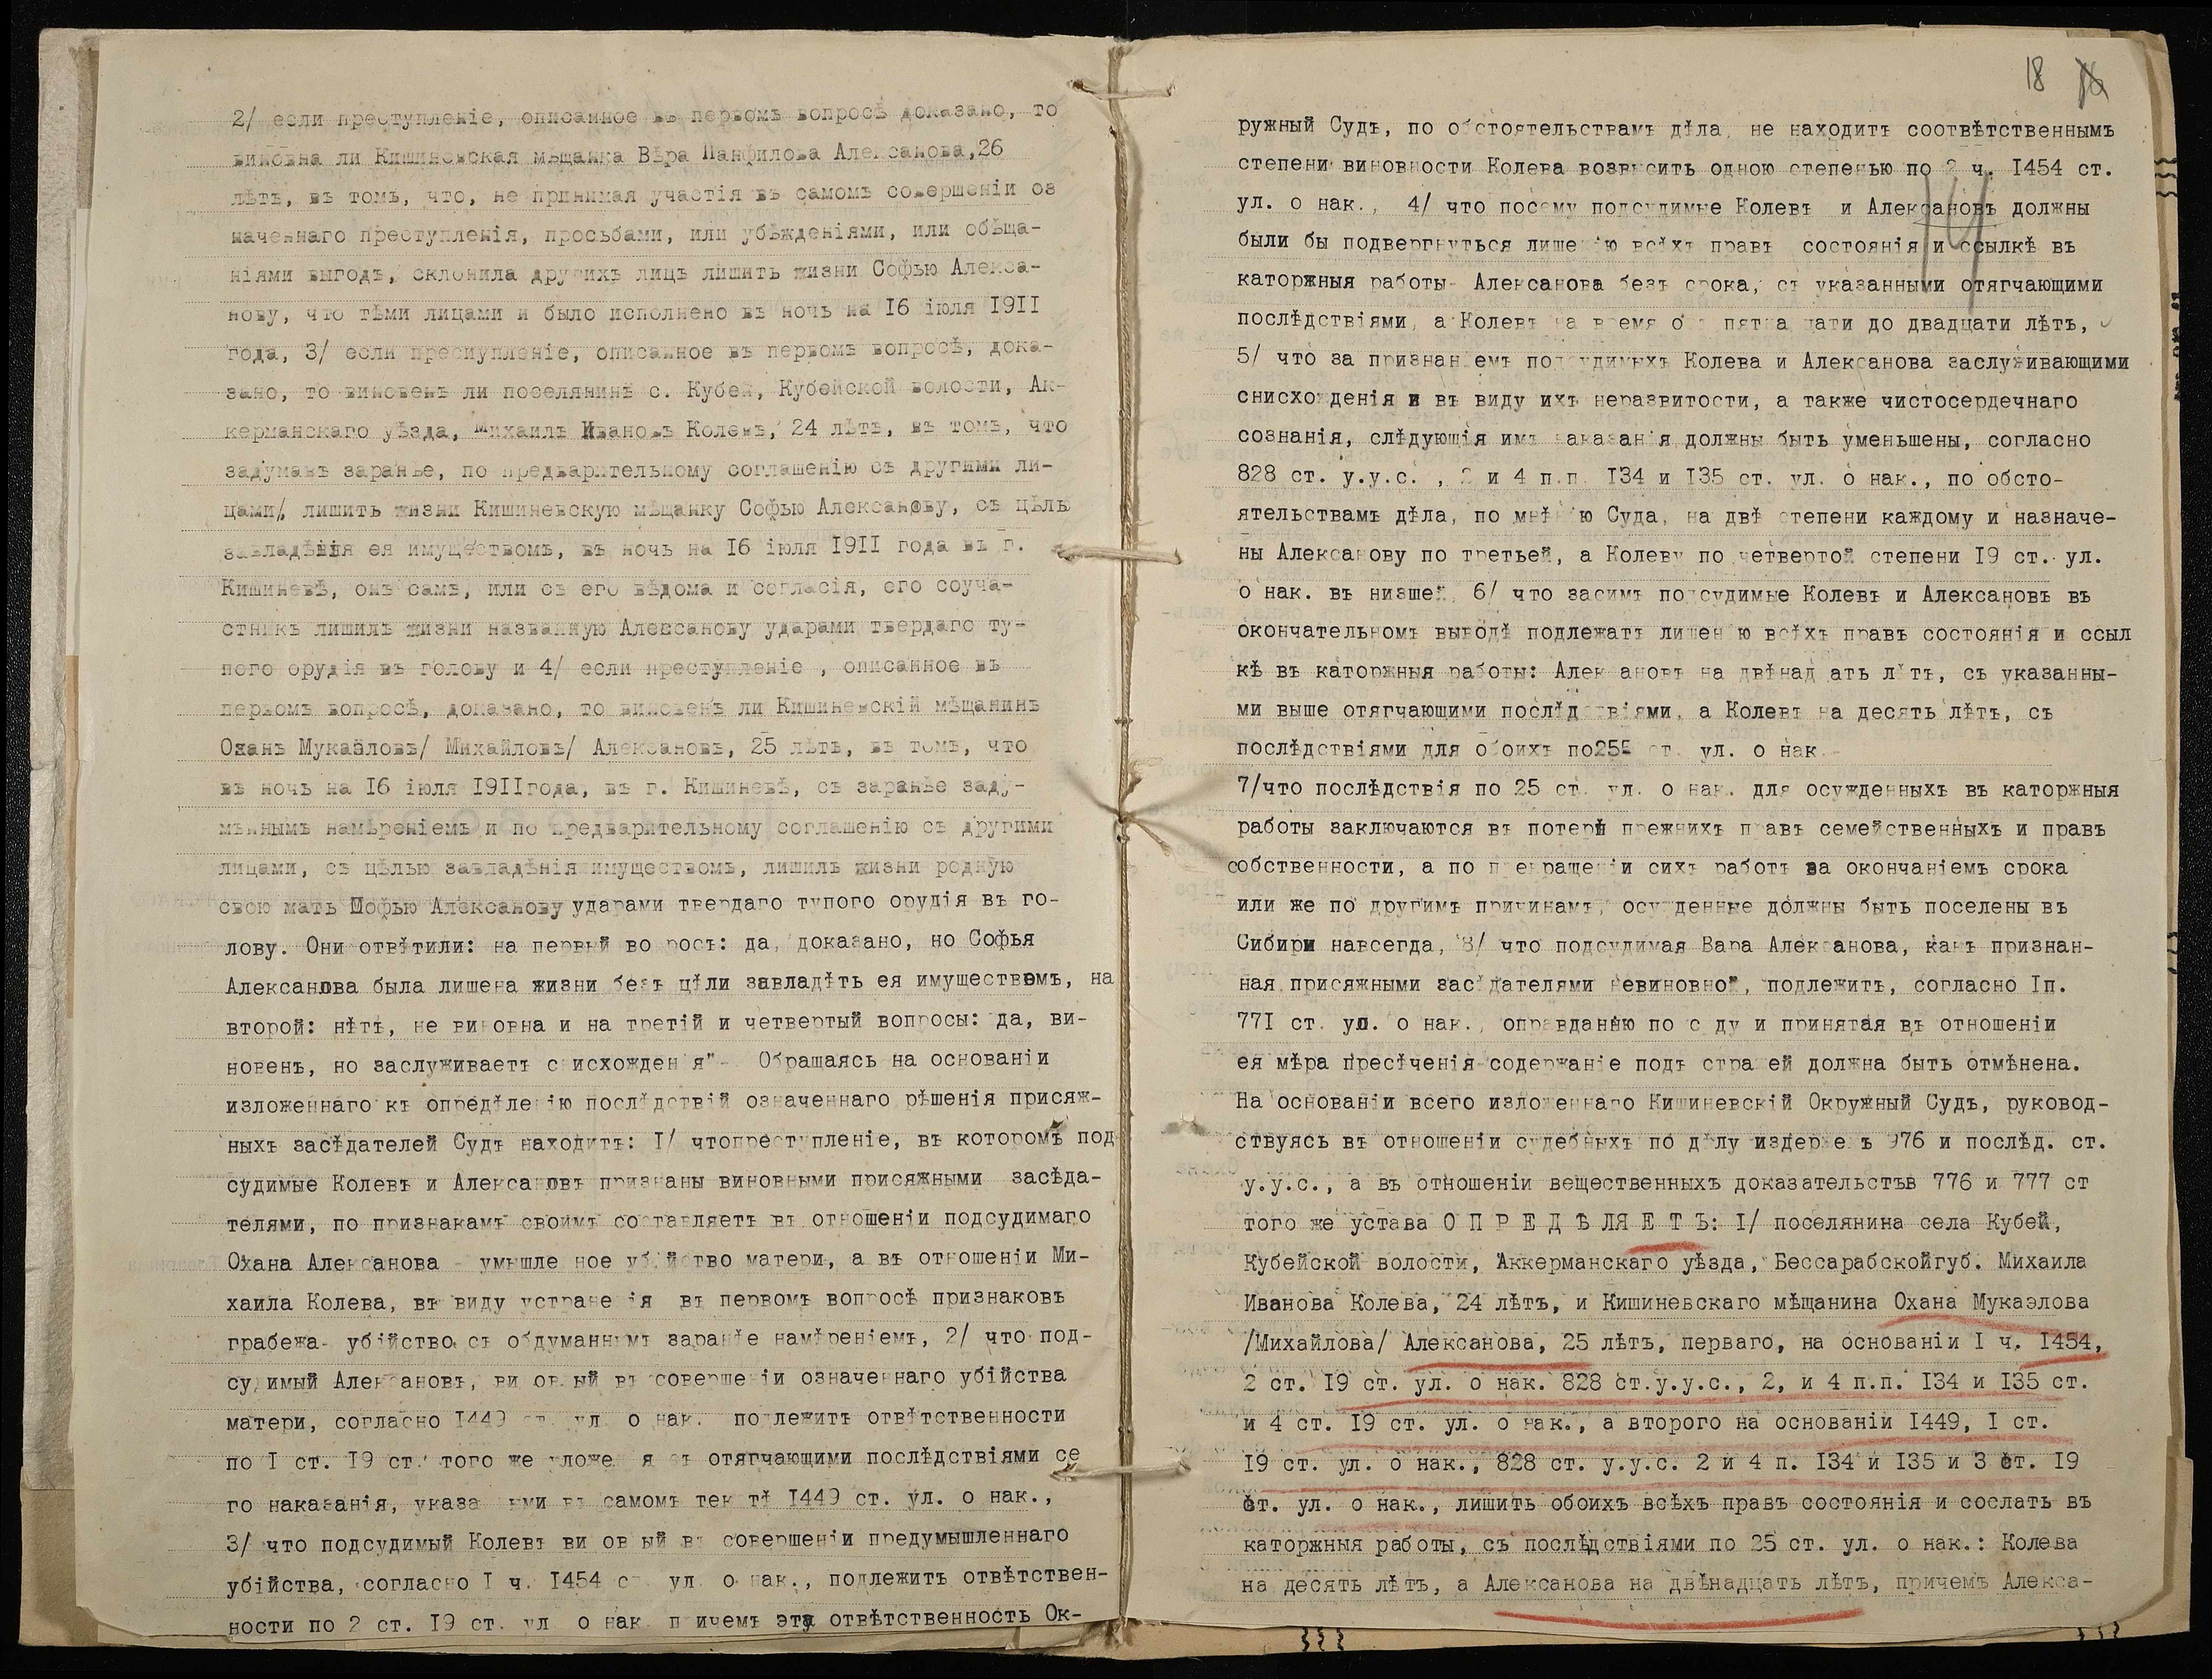 2/ если преступленіе, описанное въ первомъ вопросѣ доказано, то
виновна ли Кишиневская мѣщанка Вѣра Панфилова Алексанова,26
лѣтъ, въ томъ, что, не принимая участія въ самомъ совершеніи оз
наченнаго преступленія, просьбами, или убѣжденіями, или обѣща-
ніями выгодъ, склонила другихъ лицъ лишить жизни Софью Алекса-
нову, что тѣми лицами и было исполнено въ ночь на 16 іюля 1911
года, 3/ если преступленіе, описанное въ первомъ вопросѣ, дока-
зано, то виновенъ ли поселянинъ с. Кубей, Кубейской волости, Ак-
керманскаго уѣзда, Михаилъ Ивановъ Колевъ, 24 лѣтъ, въ томъ, что
задумавъ заранѣе, по предварительному соглашенію съ другими ли-
цами/, лишить жизни Кишиневскую мѣщанку Софью Алексанову, съ цѣль
завладѣнія ея имуществомъ, въ ночь на 16 іюля 1911 года въ г.
Кишиневѣ, онъ самъ, или съ его вѣдома и согласія, его соуча-
стникъ лишилъ жизни названную Алексанову ударами твердаго ту-
пого орудія въ голову и 4/ если преступленіе , описанное въ
первомъ вопросѣ, доказано, то виновенъ ли Кишиневскій мѣщанинъ
Оханъ Мукаэловъ/ Михайловъ/ Алексановъ, 25 лѣтъ, въ томъ, что
въ ночь на 16 іюля 1911года, въ г. Кишиневѣ, съ заранѣе заду-
маннымъ намѣреніемъ и по предварительному соглашенію съ другими
лицами, съ цѣлью завладѣнія имуществомъ, лишилъ жизни родную
свою мать Софью Алексанову ударами твердаго тупого орудія въ го-
лову. Они отвѣтили: на первый вопросъ: да, доказано, но Софья
Алексанова была лишена жизни безъ цѣли завладѣть ея имуществомъ, на
второй: нѣтъ, не виновна и на третій и четвертый вопросы: да, ви-
новенъ, но заслуживаетъ снисхожденія"- Обращаясь на основаніи
изложеннаго къ опредѣленію послѣдствій означеннаго рѣшенія присяж-
ныхъ засѣдателей Судъ находитъ: I/ чтопреступленіе, въ которомъ под
судимые Колевъ и Алексановъ признаны виновными присяжными засѣда-
телями, по признакамъ своимъ составляетъ въ отношеніи подсудимаго
Охана Алексанова - умышленное убійство матери, а въ отношеніи Ми-
хаила Колева, въ виду устраненія въ первомъ вопросѣ признаковъ
грабежа- убійство съ обдуманнымъ заранѣе намѣреніемъ, 2/ что под-
судимый Алексановъ, виновный въ совершеніи означеннаго убійства
матери, согласно 1449 ст. ул. о нак. подлежитъ отвѣтственности
по I ст. 19 ст. того же уложенія съ отягчающими послѣдствіями се
го наказанія, указанными въ самомъ текстѣ 1449 ст. ул. о нак.,
3/ что подсудимый Колевъ виновный въ совершеніи предумышленнаго
убійства, согласно I ч. 1454 ст. ул. о нак., подлежитъ отвѣтствен-
ности по 2 ст. 19 ст. ул. о нак. причемъ эту отвѣтственность Ок-
18
ружный Судъ, по обстоятельствамъ дѣла, не находитъ соотвѣтственнымъ
степени виновности Колева возвысить одною степенью по 2 ч. 1454 ст.
ул. о нак., 4/ что посему подсудимые Колевъ и Алексановъ должны
были бы подвергнуться лишенію всѣхъ правъ состоянія и ссылкѣ въ
каторжныя работы- Алексанова безъ срока, съ указанными отягчающими
послѣдствіями, а Колевъ на время отъ пятнадцати до двадцати лѣтъ,
5/ что за признаніемъ подсудимыхъ Колева и Алексанова заслуживающими
снисхожденія и въ виду ихъ неразвитости, а также чистосердечнаго
сознанія, слѣдующія имъ наказанія должны быть уменьшены, согласно
828 ст. у.у.с. , 2 и 4 п.п. 134 и 135 ст. ул. о нак., по обсто-
ятельствамъ дѣла, по мнѣнію Суда, на двѣ степени каждому и назначе-
ны Алексанову по третьей, а Колеву по четвертой степени 19 ст. ул.
о нак. въ низшей, 6/ что засимъ подсудимые Колевъ и Алексановъ въ
окончательномъ выводѣ подлежатъ лишенію всѣхъ правъ состоянія и ссыл
кѣ въ каторжныя работы: Алексановъ на двѣнадцать лѣтъ, съ указанны-
ми выше отягчающими послѣдствіями, а Колевъ на десять лѣтъ, съ
послѣдствіями для обоихъ по25 ст. ул. о нак.-
7/что послѣдствія по 25 ст. ул. о нак. для осужденныхъ въ каторжныя
работы заключаются въ потерѣ прежнихъ правъ семейственныхъ и правъ
собственности, а по прекращеніи сихъ работъ за окончаніемъ срока
или же по другимъ причинамъ, осужденные должны быть поселены въ
Сибири навсегда, 8/ что подсудимая Вара Алексанова, какъ признан-
ная присяжными засѣдателями невиновной, подлежитъ, согласно Iп.
771 ст. ул. о нак., оправданію по суду и принятая въ отношеніи
ея мѣра пресѣченія-содержаніе подъ стражей должна быть отмѣнена.
На основаніи всего изложеннаго Кишиневскій Окружный Судъ, руковод-
ствуясь въ отношеніи судебныхъ по дѣлу издержекъ 976 и послѣд. ст.
у.у.с., а въ отношеніи вещественныхъ доказательствъ 776 и 777 ст
того же устава О П Р Е Д Ѣ ЛЯ Е Т Ъ: I/ поселянина села Кубей,
Кубейской волости, Аккерманскаго уѣзда, Бессарабскойгуб. Михаила
Иванова Колева, 24 лѣтъ, и Кишиневскаго мѣщанина Охана Мукаэлова
/Михайлова/ Алексанова, 25 лѣтъ, перваго, на основаніи I ч. 1454,
2 ст. 19 ст. ул. о нак. 828 ст.у.у.с., 2, и 4 п.п. 134 и 135 ст.
и 4 ст. 19 ст. ул. о нак., а второго на основаніи 1449, I ст.
19 ст. ул. о нак., 828 ст. у.у.с. 2 и 4 п. 134 и 135 и 3 ст. 19
ст. ул. о нак., лишить обоихъ всѣхъ правъ состоянія и сослать въ
каторжныя работы, съ послѣдствіями по 25 ст. ул. о нак.: Колева
на десять лѣтъ, а Алексанова на двѣнадцать лѣтъ, причемъ Алекса-